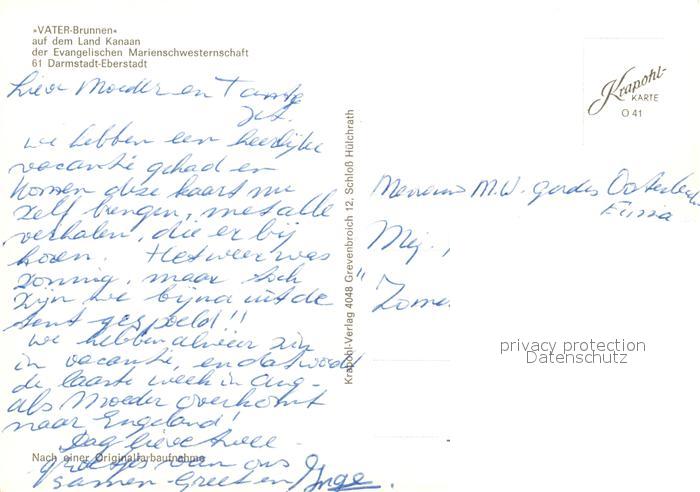 »VATER-Brunnen«
auf dem Land Kanaan
der Evangelischen Marienschwesternschaft
61 Darmstadt-Eberstadt
Lieve Moeder en Tante
Jet.
we hebben een heerlijke
vacantie gehad en
komen deze kaart nu
zelf brengen, met alle
verhalen, die er bij
horen. Het weer was
zonnig, maar toch
zijn we bijna uit de
tent gespoeld!!
we hebben alweer zin
in vacantie, en dat wordt
de laatste week in Aug.
als Moeder overkomt
naar Engeland!
Dag lieve twee
groetjes van ons
samen Greet en Inge.
Nach einer Originalfarbaufnahme
Krapohl-Verlag 4048 Grevenbroich 12, Schloß Hülchrath
Krapohl-
KARTE
O 41
Mevrouw M.W. Gerdes Oosterbeek
Mej.,
"
Zome
privacy protection
Datenschutz